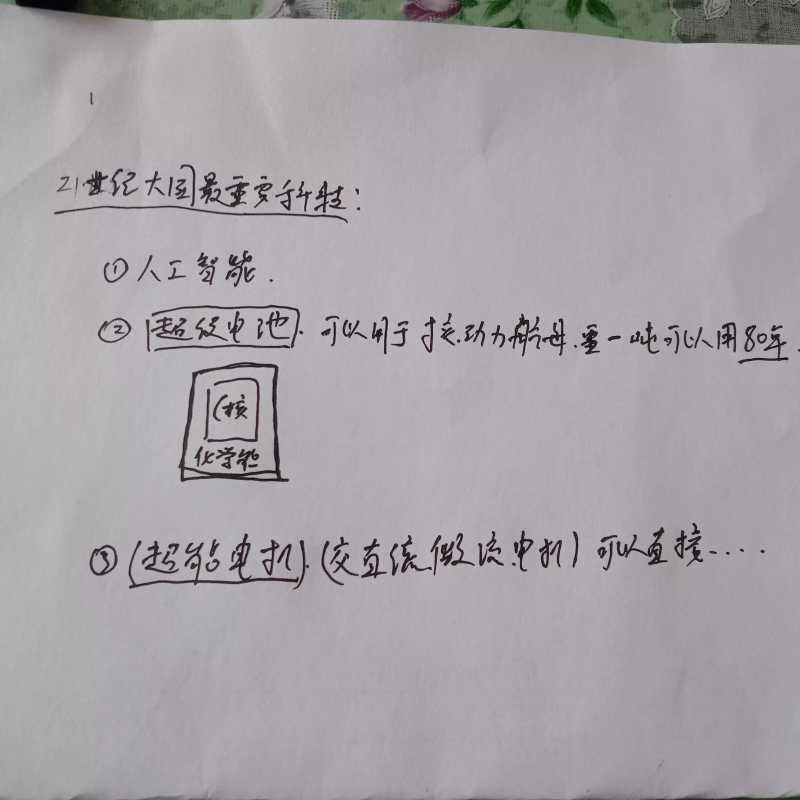 1
21世纪大国最重要科技:
① 人工智能.
② 超级电池. 可以用于核动力航母.重一吨可以用80年.
(核
化学能
③ (超能电机). (交直流微流电机) 可以直接....